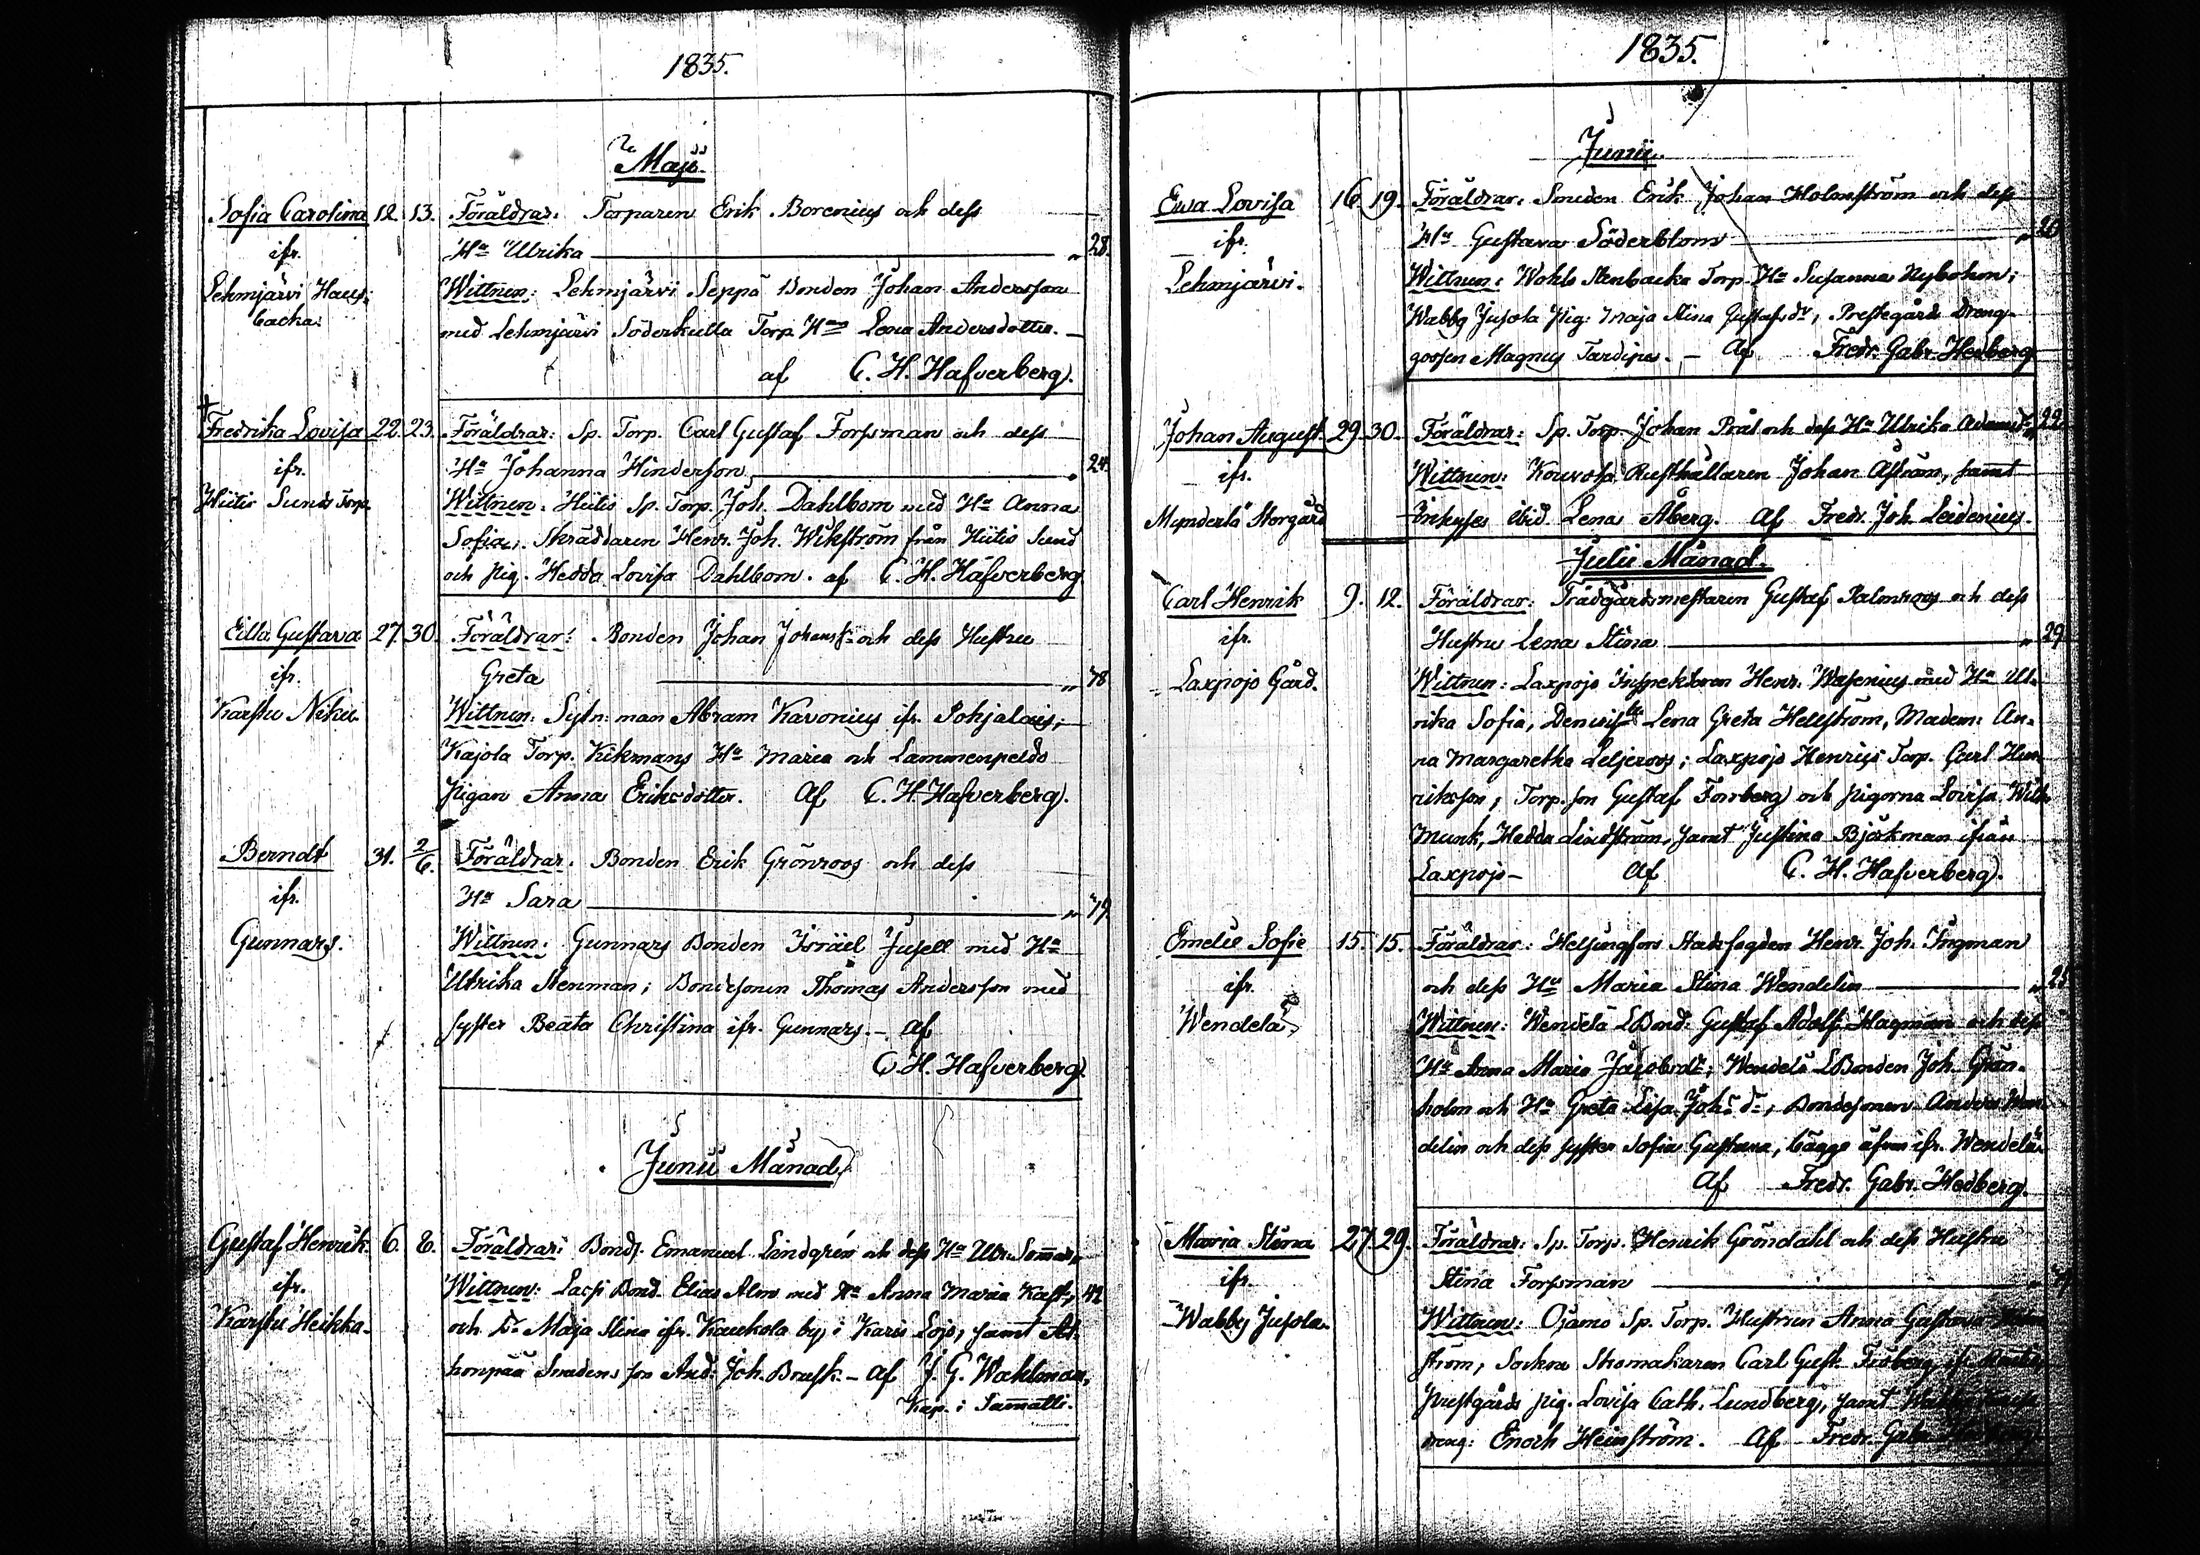 1835.
Maji.
Sofia Carolina 12. 13. Föräldrar: Torparen Erik Borenius och dess
ifr. Hu Ulrika " 28.
Lehmjärvi Wittnen: Lehmjärvi Seppä Bonden Johan Andersson
backa. med Lehmjärvi Söderkulla Torp. Hu Lena Andersdotter.
af C. H. Hafverberg.
Fredrika Lovisa 22. 23. Föräldrar: Sp. Torp. Carl Gustaf Forssman och dess
ifr. Hu Johanna Hinderson " 24.
Hiitis Sunds Torp. Wittnen: Hiitis Sp. Torp. Joh. Dahlbom med Hu Anna
Sofia; Skräddaren Henr. Joh. Wikström från Hiitis Sund
och pig. Hedda Lovisa Dahlbom. af C. H. Hafverberg
Gustava 27. 30. Föräldrar: Bonden Johan Johanss. och dess Hustru
ifr. Greta " 78
Karstu Wittnen: man Abram Kavonius ifr. Pohjalais;
Kajola Torp. Kikmans Hu Maria och
Pigan Anna Eriksdotter. Af C. H. Hafverberg.
Berndt 31. 2/6. Föräldrar: Bonden Erik Grönroos och dess
ifr. Hu Sara " 79.
Gunnars. Wittnen: Gunnars Bonden Israel Jusell med Hu
Ulrika Stenman; Bondesonen Thomas Andersson med
syster Beata Christina ifr. Gunnars. – af
C. H. Hafverberg
Junii Månad
Gustaf Henrik 6. 8. Föräldrar: Bond. Emanuel Lindgrén och dess Hu Ulr.
ifr. Wittnen: Bond. Elias Alm med Hu Anna Maria 42
Karstu Heikka. och Dr Maja Stina ifr. Kaukola by i Karis Lojo, samt
Smedens son And. Joh. – af J. G. Wahlman,
Kap. i Sammatti.
1835.
Junii.
Ewa Lovisa 16. 19. Föräldrar: Smeden Erik Johan Holmström och dess
ifr. Hu Gustava Söderblom
Lehmjärvi. Wittnen: Wohls Stenbacka Torp. Hu Susanna Nyholm;
Wabby Jusola Pig. Maja Stina Gustafsdr, Prestegårds Dreng-
gossen Magnus – Af Fredr. Gabr. Hedberg
Johan August. 29. 30. Föräldrar: Sp. Torp. Johan och dess Hu Ulrika Adamsdr 22
ifr. Wittnen: Kouvola Rusthållaren Johan Åström, samt
Mynderlä Storgård ibid. Lena Åberg. Af Fredr. Joh. Leidenius.
Julii Månad.
Carl Henrik 9. 12. Föräldrar: Trädgårdsmestaren Gustaf Palmroos och dess
ifr. Hustru Lena Stina " 29
Laxpojo Gård. Wittnen: Laxpojo Inspektoren Henr. Wasenius med Hu Ul-
rika Sofia, Lena Greta Hellström, Madem: An-
na Margaretha Leljeroos; Laxpojo Torp. Carl Hen-
riksson, Torp. son Gustaf Forrberg och pigorna Lovisa
Munk, Hedda Lindström, samt Justina Björkman ifrån
Laxpojo – af C. H. Hafverberg.
Emelie Sofie 15. 15. Föräldrar: Helsingfors Stadsfogden Henr. Joh. Ingman
ifr. och dess Hu Maria Stina Wendelin
Wendelä Wittnen: Wendelä Bond. Gustaf Adolf Hagman och dess
Hu Anna Maria Jacobsdr; Wendelä Bonden Joh. Grön-
holm och Hu Greta Lisa Joh. dr, Bondesonen Anders Wen-
delin och dess syster Sofia Gustava, bägge äfven ifr. Wendelä.
Af Fredr. Gabr. Hedberg.
Maria Stina 27. 29. Föräldrar: Sp. Torp. Henrik Gröndahl och dess Hustru
ifr. Stina Forssman
Wabby Jusola. Wittnen: Ojamo Sp. Torp. Hustrun Anna Gustava
ström, Sockne Skomakaren Carl Gust. ifr.
Prestgårds pig. Lovisa Cath. Lundberg, samt
dreng: Enoch Heinström. Af Fredr. Gabr.